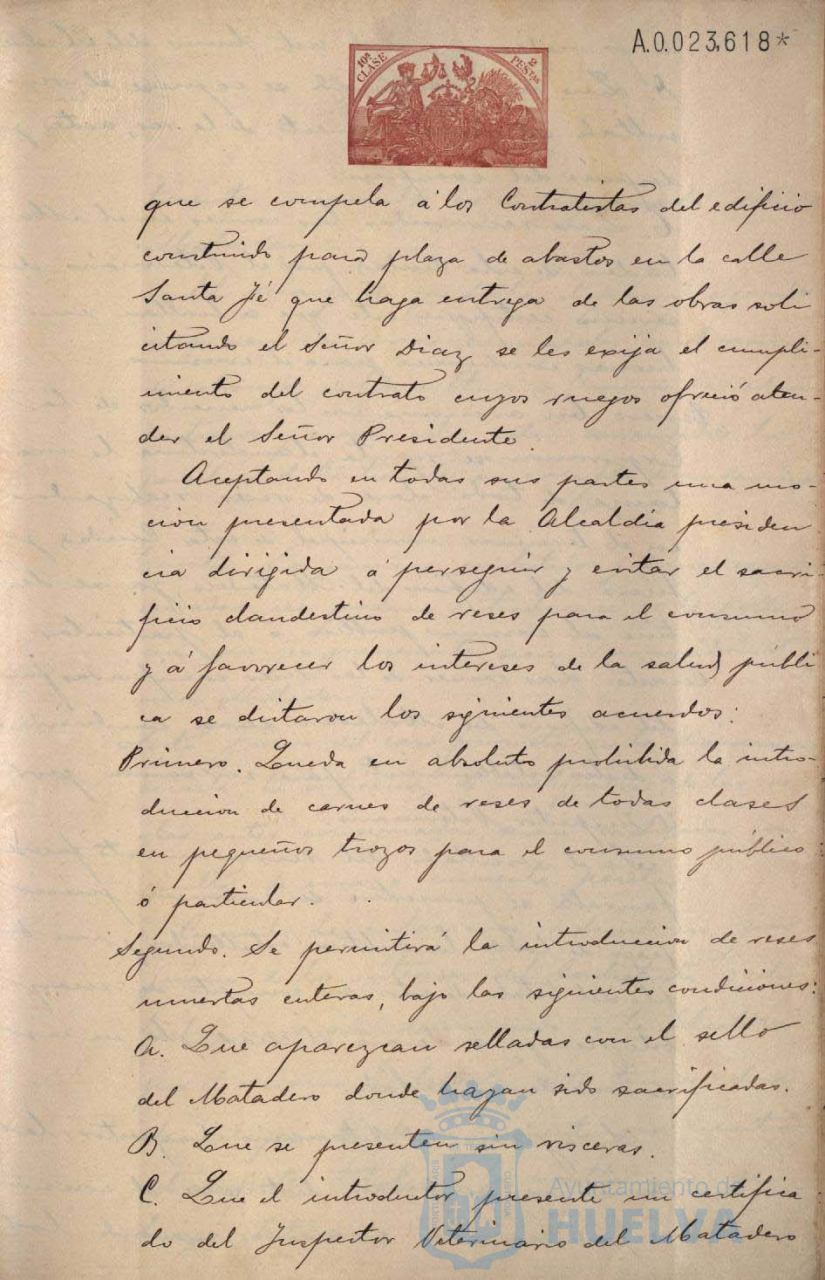 A.0.023,618*
10ª CLASE
2 PESTAS
que se compela á los Contratistas del edificio
construido para plaza de abastos en la calle
Santa Fé que haga entrega de las obras soli
citando el Señor Diaz se les exija el cumpli-
miento del contrato cuyos ruegos ofreció aten-
der el Señor Presidente.
Aceptando en todas sus partes una mo-
cion presentada por la Alcaldia presiden
cia dirigida á perseguir y evitar el sacri-
ficio clandestino de reses para el consumo
y á favorecer los intereses de la salud públi
ca se dictaron los siguientes acuerdos:
Primero. Queda en absoluto prohibida la intro-
duccion de carnes de reses de todas clases
en pequeños trozos para el consumo público
ó particular.
Segundo. Se permitirá la introduccion de reses
muertas enteras, bajo las siguientes condiciones:
A. Que aparezcan selladas con el sello
del Matadero donde hayan sido sacrificadas.
B. Que se presenten sin visceras.
C. Que el introductor presente un certifica
do del Inspector Veterinario del Matadero
Ayuntamiento de
HUELVA